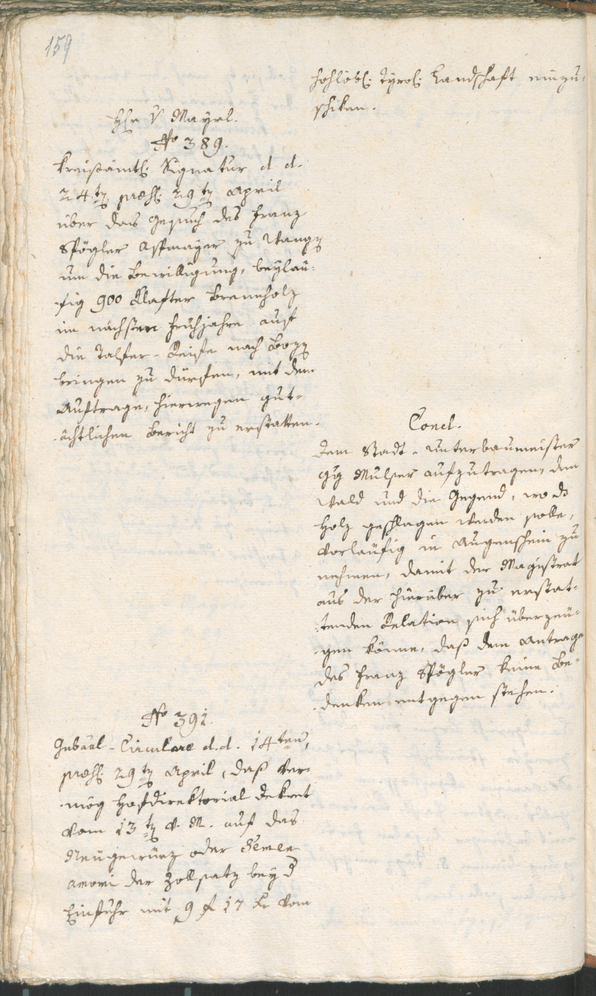 159
hochlöbl. Tyrol. Landschaft einzu-
schiken.
Hr v Mayrl.
No 389.
Kreisämtl. Signatur d. d.
24ten praes. 29ten April
über das Gesuch des Franz
Spögler Assmayer zu Wangg
um die Bewilligung, beyläu-
fig 900 Klafter Brennholz
im nächsten Frühjahre auf
die Talfer-Reise nach Bozen
bringen zu dürfen, mit dem
Auftrage, hierwegen gut-
ächtlichen Bericht zu erstatten.
Concl.
Dem Stadt-Unterbaumeister
Gg Mulser aufzutragen, den
Wald und die Gegend, wo ds
Holz geschlagen werden solle,
vorläufig in Augenschein zu
nehmen, damit der Magistrat
aus der hierüber zu erstat-
tenden Relation sich überzeu-
gen könne, daß dem Antrage
des Franz Spögler keine Be-
denken entgegen stehen.
No 391.
Gubäal-Circulare d. d. 14ten,
praes. 29ten April, daß ver-
mög Hofdirektorial Dekret
vom 13ten v. M. auf das
Neugewürz oder Semen
amomi der Zollsatz bey d
Einfuhr mit 9 f 17 kr vom